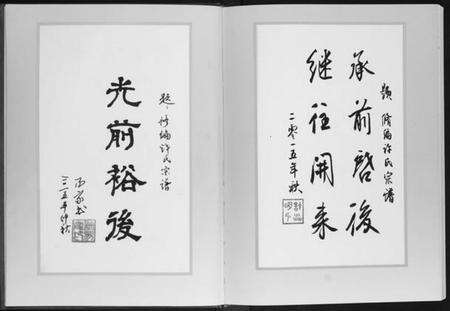 题修编许氏宗谱
承前啓後
继往开来
二零一五年秋
题·修编许氏宗谱
光前裕後
二〇一五年仲秋